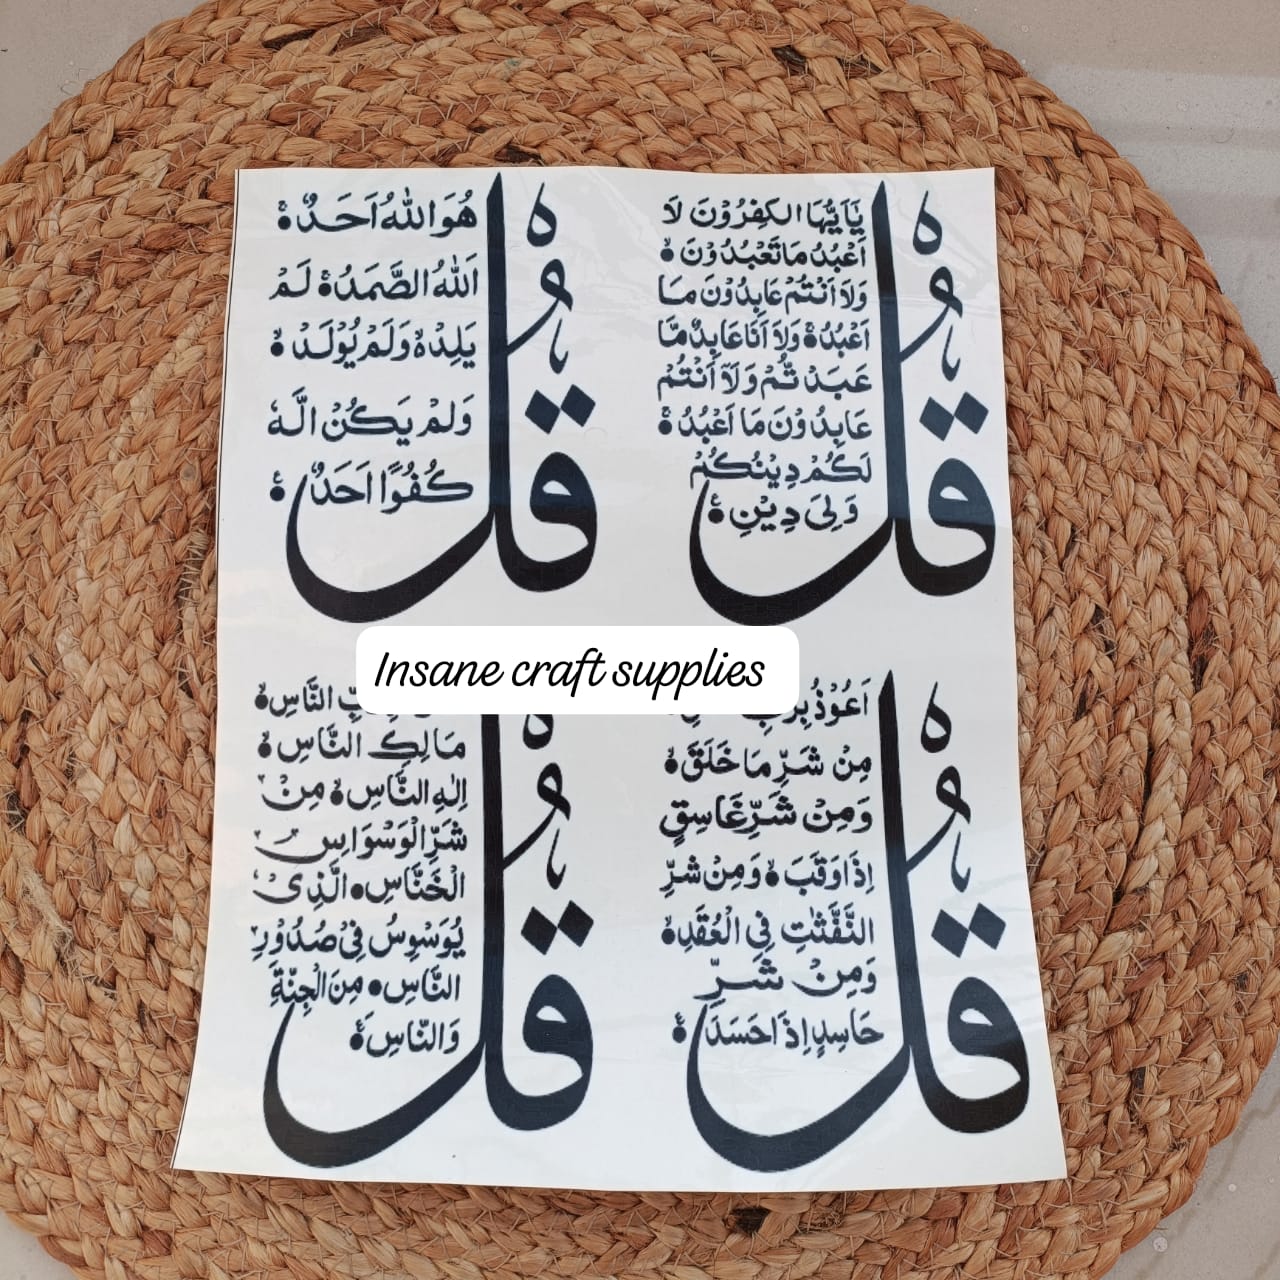 قُلْ
يٰٓاَيُّهَا الكٰفِرُوْنَ لَا
اَعْبُدُ مَا تَعْبُدُوْنَ
وَلَا اَنْتُمْ عَابِدُوْنَ مَا
اَعْبُدُ وَلَا اَنَا عَابِدٌ مَّا
عَبَدْ تُّمْ وَلَآ اَنْتُمْ
عَابِدُوْنَ مَا اَعْبُدُ
لَكُمْ دِيْنُكُمْ
وَلِىَ دِيْنِ
قُلْ
هُوَ اللّٰهُ اَحَدٌ
اَللّٰهُ الصَّمَدُ لَمْ
يَلِدْ وَلَمْ يُوْلَدْ
وَلَمْ يَكُنْ الَّهٗ
كُفُوًا اَحَدٌ
Insane craft supplies
قُلْ
اَعُوْذُ بِرَبِّ
مِنْ شَرِّ مَا خَلَقَ
وَمِنْ شَرِّ غَاسِقٍ
اِذَا وَقَبَ وَمِنْ شَرِّ
النَّفّٰثٰتِ فِى الْعُقَدِ
وَمِنْ شَرِّ
حَاسِدٍ اِذَا حَسَدَ
قُلْ
النَّاسِ
مَالِكِ النَّاسِ
اِلٰهِ النَّاسِ مِنْ
شَرِّ الْوَسْوَاسِ
الْخَنَّاسِ الَّذِىْ
يُوَسْوِسُ فِىْ صُدُوْرِ
النَّاسِ مِنَ الْجِنَّةِ
وَالنَّاسِ